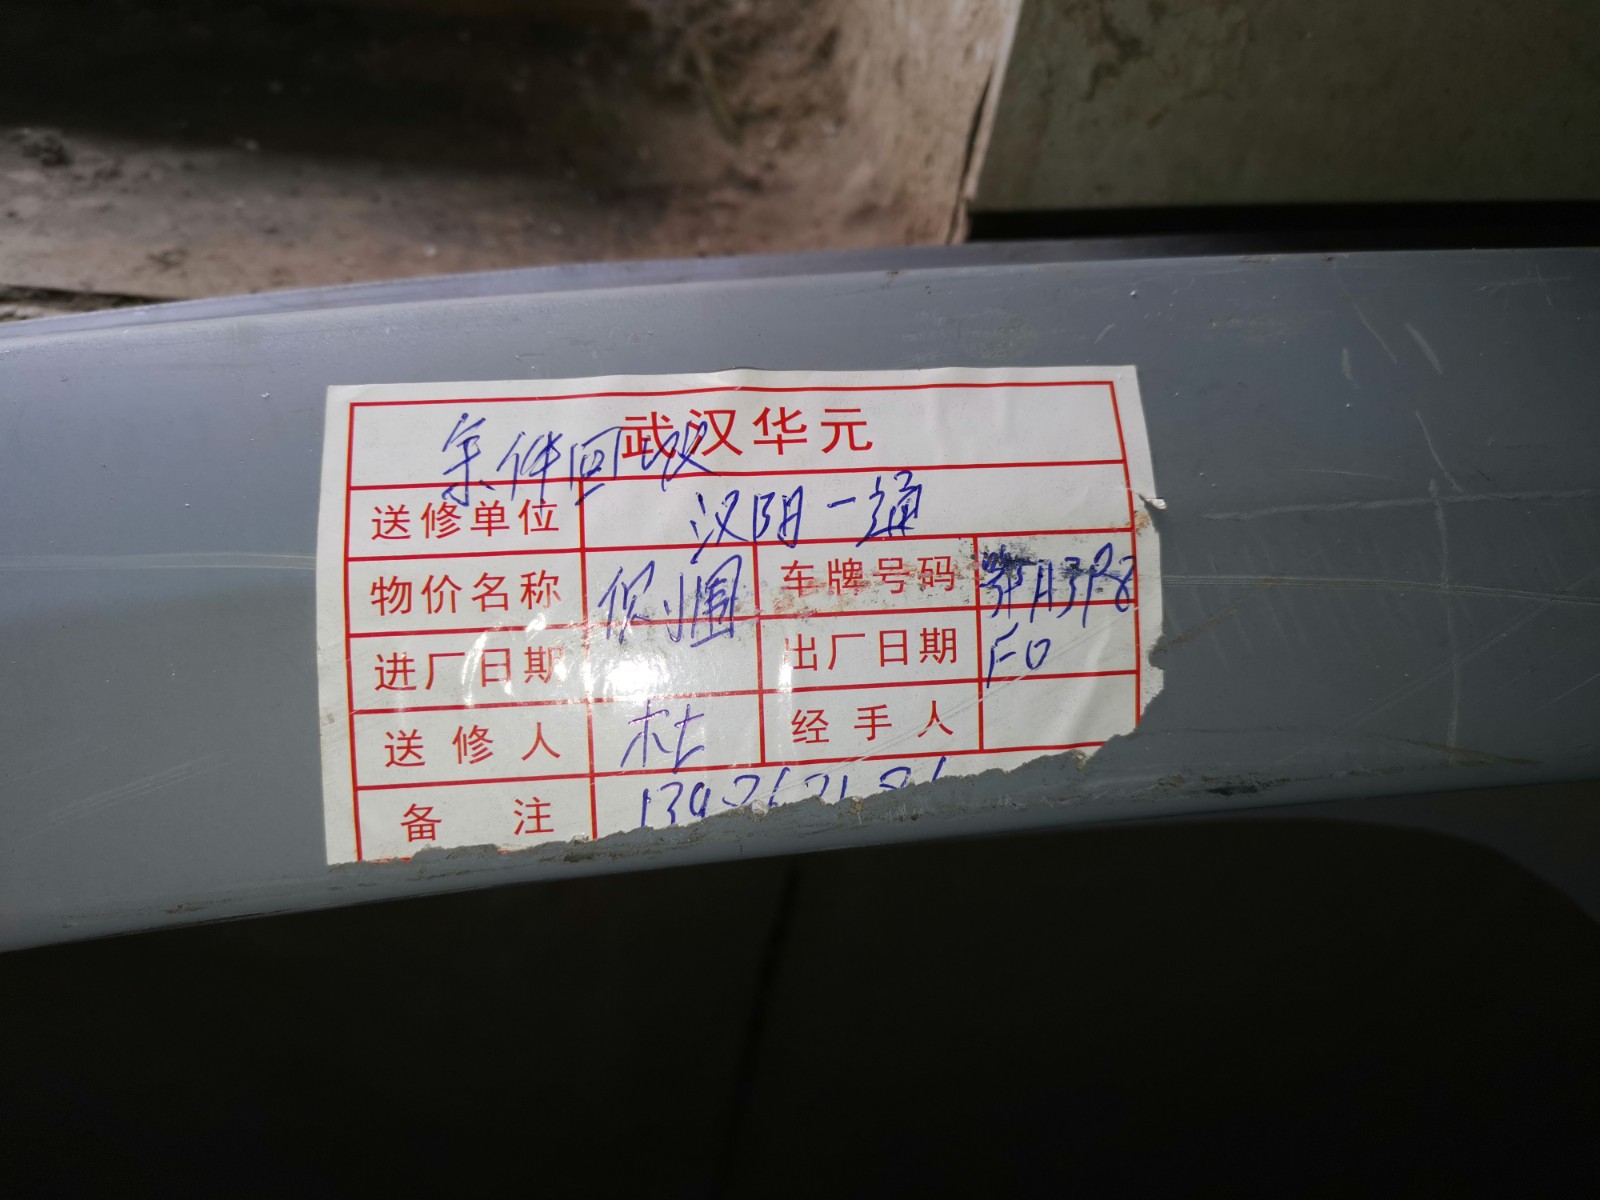 武汉华元
余件回收
送修单位 汉阳一通
物价名称 保囲 车牌号码 鄂A3P8
进厂日期 出厂日期 F0
送修人 杜 经手人
备注